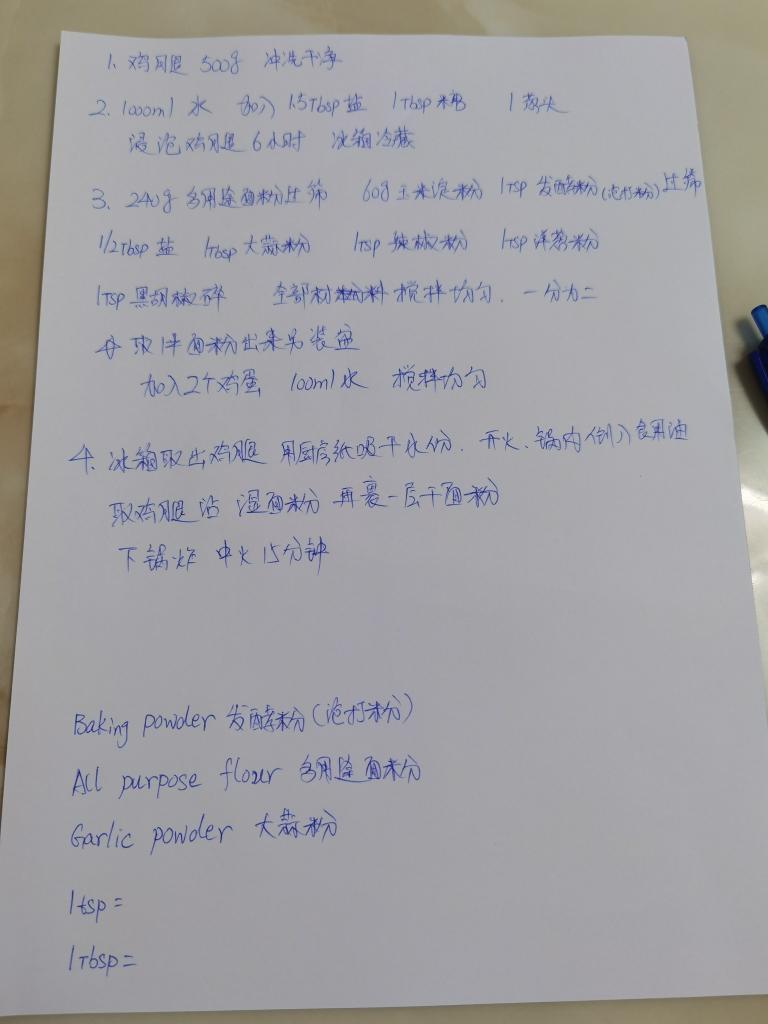 1. 鸡腿 500g 冲洗干净
2. 1000ml 水 加入 1.5Tbsp 盐 1Tbsp 糖 1 葱头
浸泡鸡腿 6小时 冰箱冷藏
3. 240g 多用途面粉过筛 60g 玉米淀粉 1TSP 发酵粉(泡打粉)过筛
1/2Tbsp 盐 1Tbsp 大蒜粉 1TSP 辣椒粉 1TSP 洋葱粉
1TSP 黑胡椒碎 全部材料 搅拌均匀. 一分为二
取1半面粉出来另装盆
加入2个鸡蛋 100ml 水 搅拌均匀
4. 冰箱取出鸡腿 用厨房纸吸干水份. 开火、锅内倒入食用油
取鸡腿沾 湿面粉 再裹一层干面粉
下锅炸 中火15分钟
Baking powder 发酵粉(泡打粉)
All purpose flour 多用途面粉
Garlic powder 大蒜粉
1tsp =
1Tbsp =